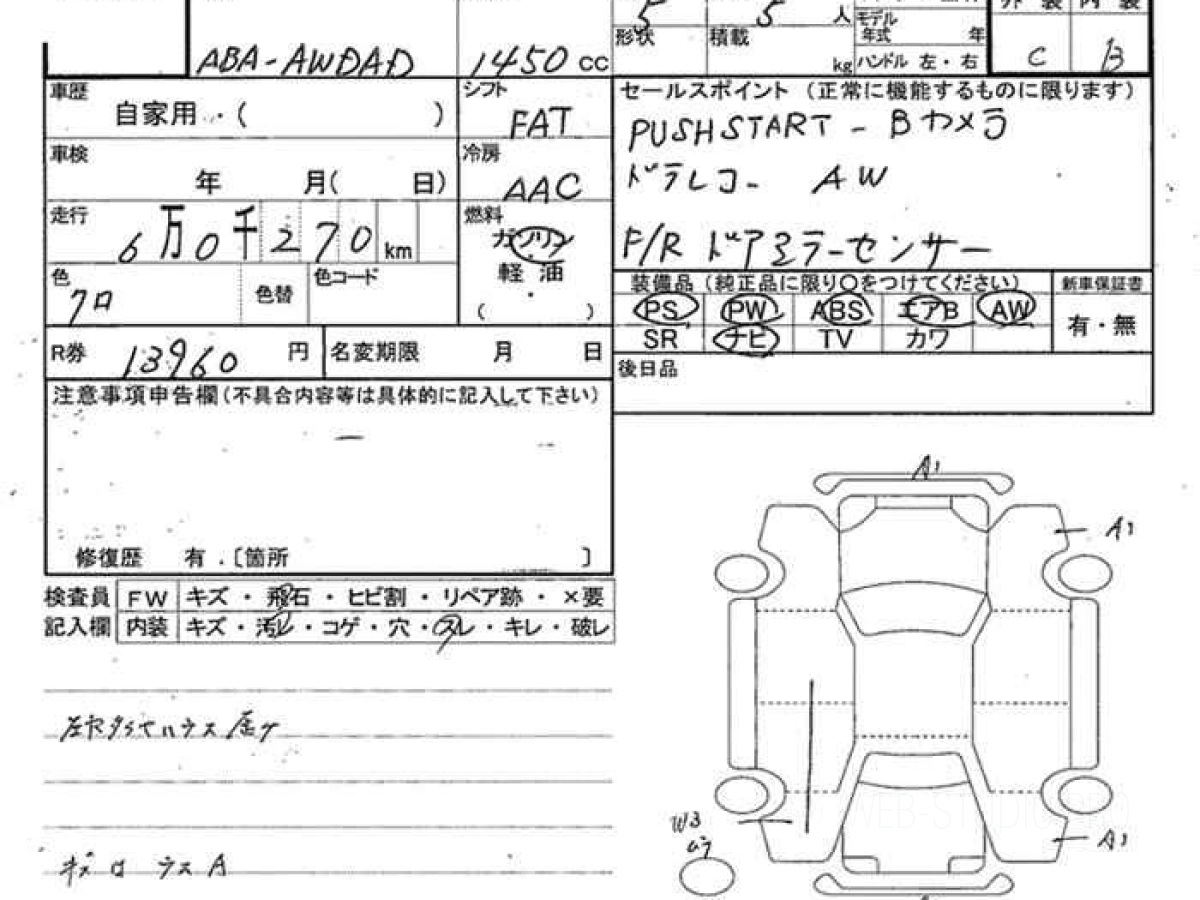 5 5 人
モデル
年式 年
外装 内装
C B
形状 積載 kg
ハンドル 左・右
ABA-AWDAD 1450 cc
車歴 自家用・( )
シフト FAT
車検 年 月( 日)
冷房 AAC
走行 6万0千270 km
燃料 ガソリン
軽・油
・
( )
色 クロ 色替 色コード
R券 13960 円 名変期限 月 日
注意事項申告欄(不具合内容等は具体的に記入して下さい)
修復歴 有・〔箇所 〕
セールスポイント(正常に機能するものに限ります)
PUSHSTART - Bカメラ
ドラレコ- AW
F/R ドアミラーセンサー
装備品(純正品に限り○をつけてください)
新車保証書
PS PW ABS エアB AW
有・無
SR ナビ TV カワ
後日品
検査員 FW キズ・飛石・ヒビ割・リペア跡・×要
記入欄 内装 キズ・汚レ・コゲ・穴・スレ・キレ・破レ
A1
A1
W3
ムラ
A1
WEB-STUDIO.PRO